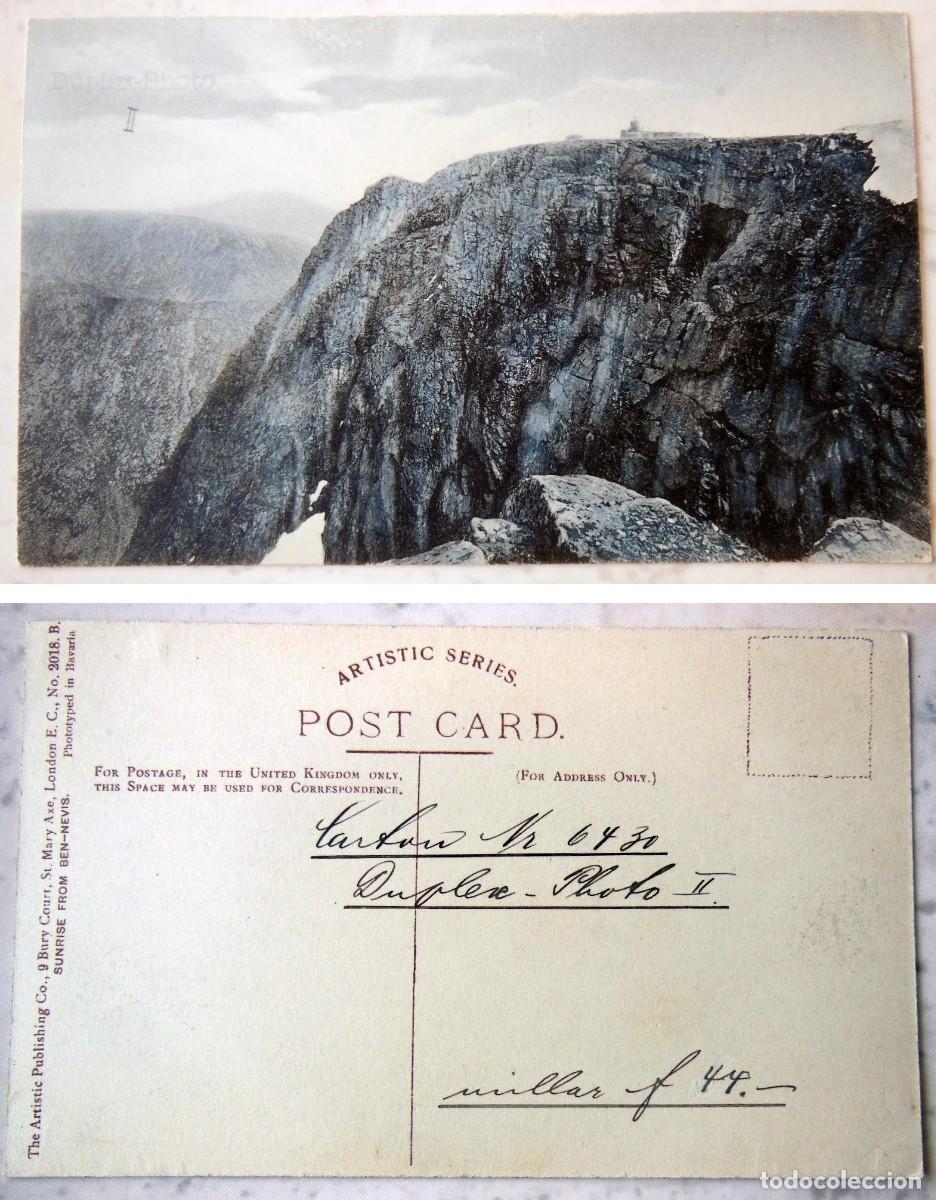 Duplex-Photo
II
ARTISTIC SERIES.
POST CARD.
FOR POSTAGE, IN THE UNITED KINGDOM ONLY,
THIS SPACE MAY BE USED FOR CORRESPONDENCE.
(FOR ADDRESS ONLY.)
Carton Nr 6430
Duplex-Photo II.
millar f 44.-
The Artistic Publishing Co., 9 Bury Court, St. Mary Axe, London E. C., No. 2018. B.
SUNRISE FROM BEN-NEVIS.
Phototyped in Bavaria
todocoleccion